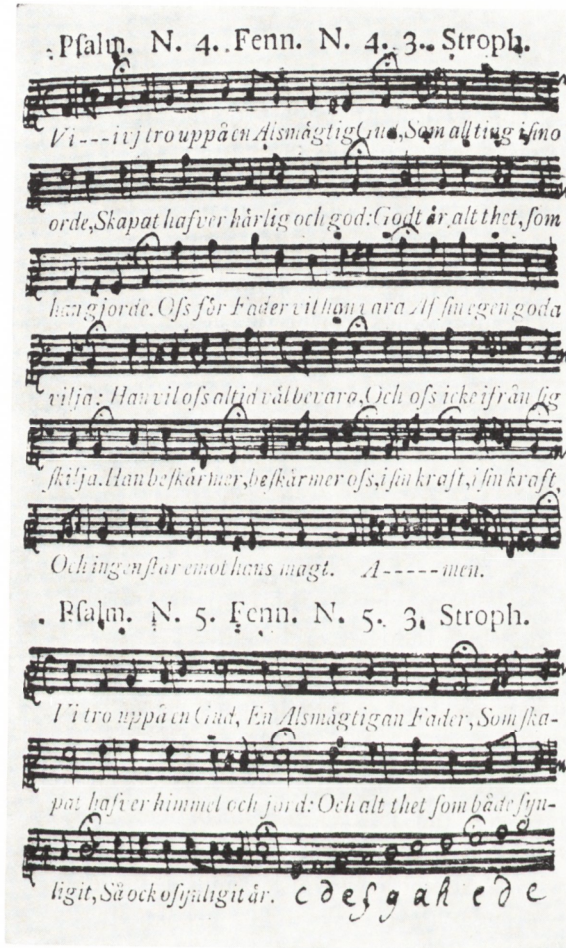 Pſalm. N. 4. Fenn. N. 4. 3. Stroph.
Vi---ivj tro uppå en Alsmågtig Gud, Som allting i ſino
orde, Skapat hafver hårlig och god: Godt år alt thet, ſom
han gjorde. Oſs för Fader vil han vara Af ſin egen goda
vilja: Han vil oſs altid vål bevara, Och oſs icke ifrån ſig
ſkilja. Han beſkårmer, beſkårmer oſs, i ſin kraft, i ſin kraft,
Och ingen ſtår emot hans magt. A-----men.
Pſalm. N. 5. Fenn. N. 5. 3. Stroph.
Vi tro uppå en Gud, En Alsmågtigan Fader, Som ſka-
pat hafver himmel och jord: Och alt thet ſom både ſyn-
ligit, Så ock oſynligit år. c d e f g a h c d e